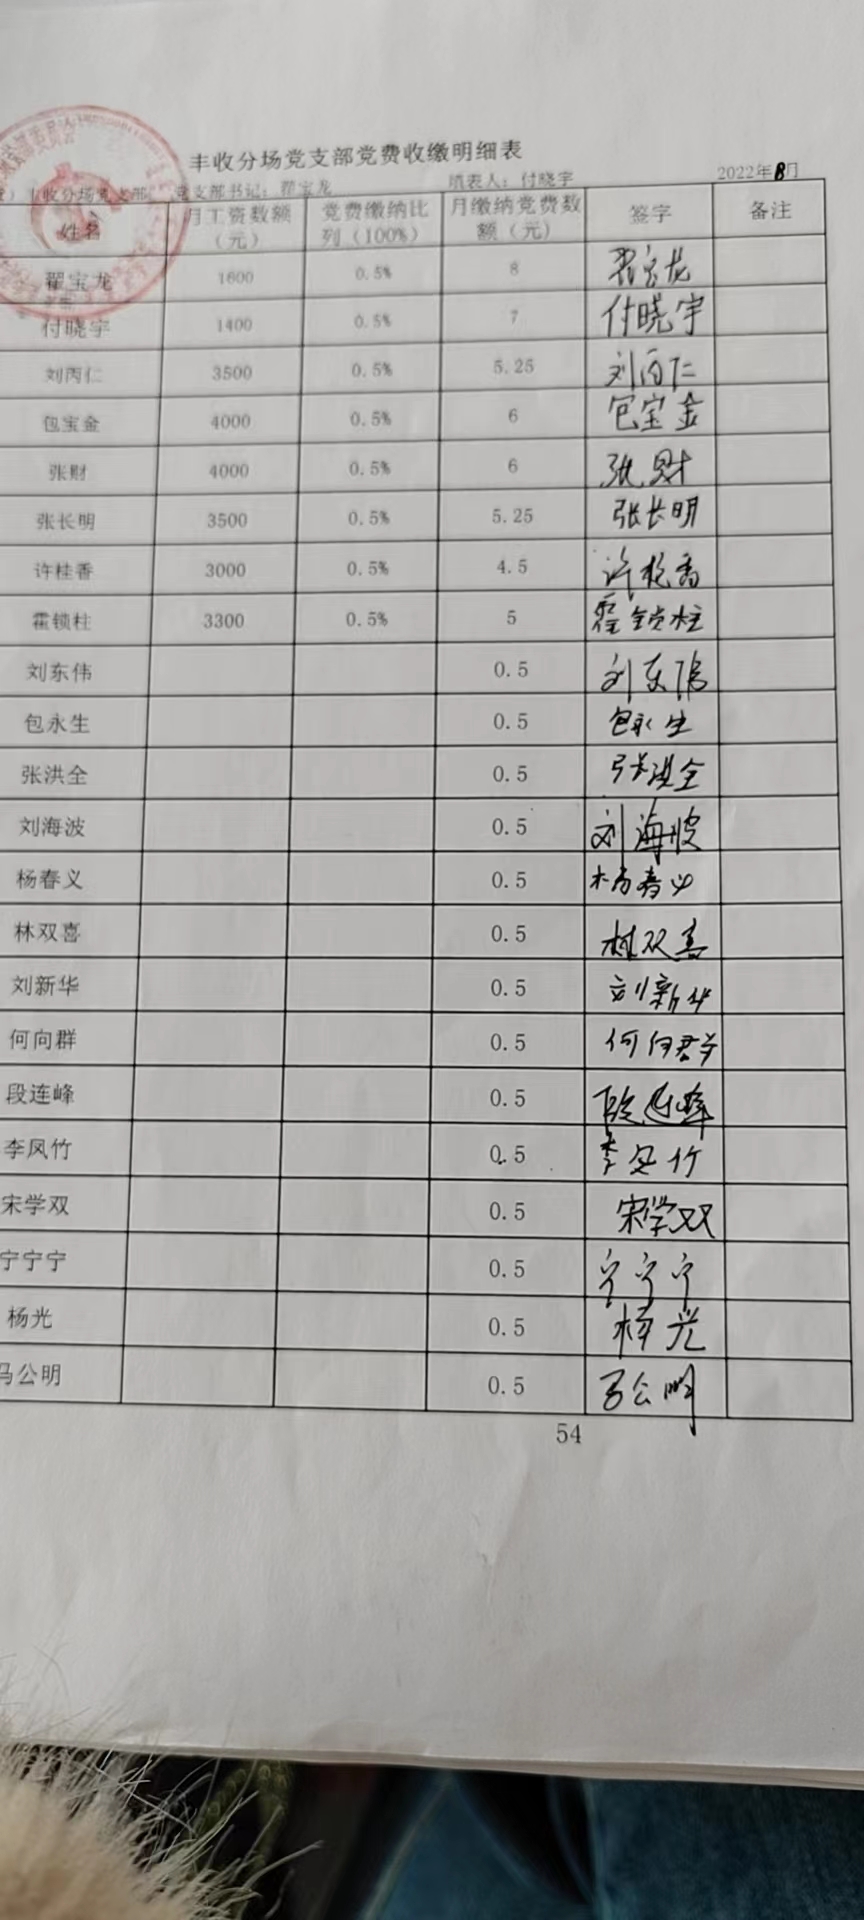 丰收分场党支部党费收缴明细表
）丰收分场党支部 党支部书记：翟宝龙 填表人：付晓宇 2022年8月
姓名 月工资数额（元） 党费缴纳比列（100%） 月缴纳党费数额（元） 签字 备注
翟宝龙 1600 0.5% 8 翟宝龙
付晓宇 1400 0.5% 7 付晓宇
刘丙仁 3500 0.5% 5.25 刘丙仁
包宝金 4000 0.5% 6 包宝金
张财 4000 0.5% 6 张财
张长明 3500 0.5% 5.25 张长明
许桂香 3000 0.5% 4.5 许桂香
霍锁柱 3300 0.5% 5 霍锁柱
刘东伟 0.5 刘东伟
包永生 0.5 包永生
张洪全 0.5 张洪全
刘海波 0.5 刘海波
杨春义 0.5 杨春义
林双喜 0.5 林双喜
刘新华 0.5 刘新华
何向群 0.5 何向群
段连峰 0.5 段连峰
李凤竹 0.5 李凤竹
宋学双 0.5 宋学双
宁宁宁 0.5 宁宁宁
杨光 0.5 杨光
马公明 0.5 马公明
54